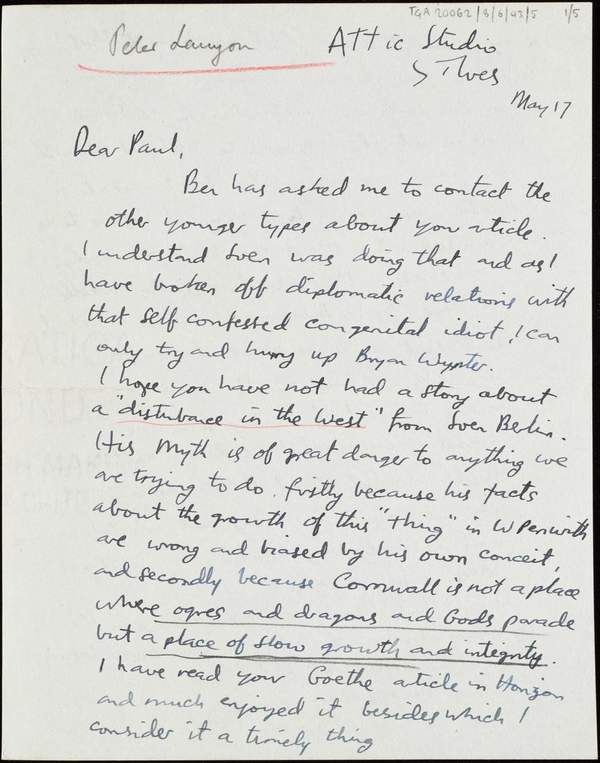 TGA 20062/3/6/43/5 1/5
Peter Lanyon
Attic Studio
St Ives
May 17
Dear Paul,
Ben has asked me to contact the
other younger types about your article.
I understand Sven was doing that and as I
have broken off diplomatic relations with
that self confessed congenital idiot, I can
only try and hurry up Bryan Wynter.
I hope you have not had a story about
a "disturbance in the West" from Sven Berlin.
His myth is of great danger to anything we
are trying to do. firstly because his facts
about the growth of this "thing" in W Penwith
are wrong and biased by his own conceit,
and secondly because Cornwall is not a place
where ogres and dragons and Gods parade
but a place of slow growth and integrity.
I have read your Goethe article in Horizon
and much enjoyed it besides which I
consider it a timely thing